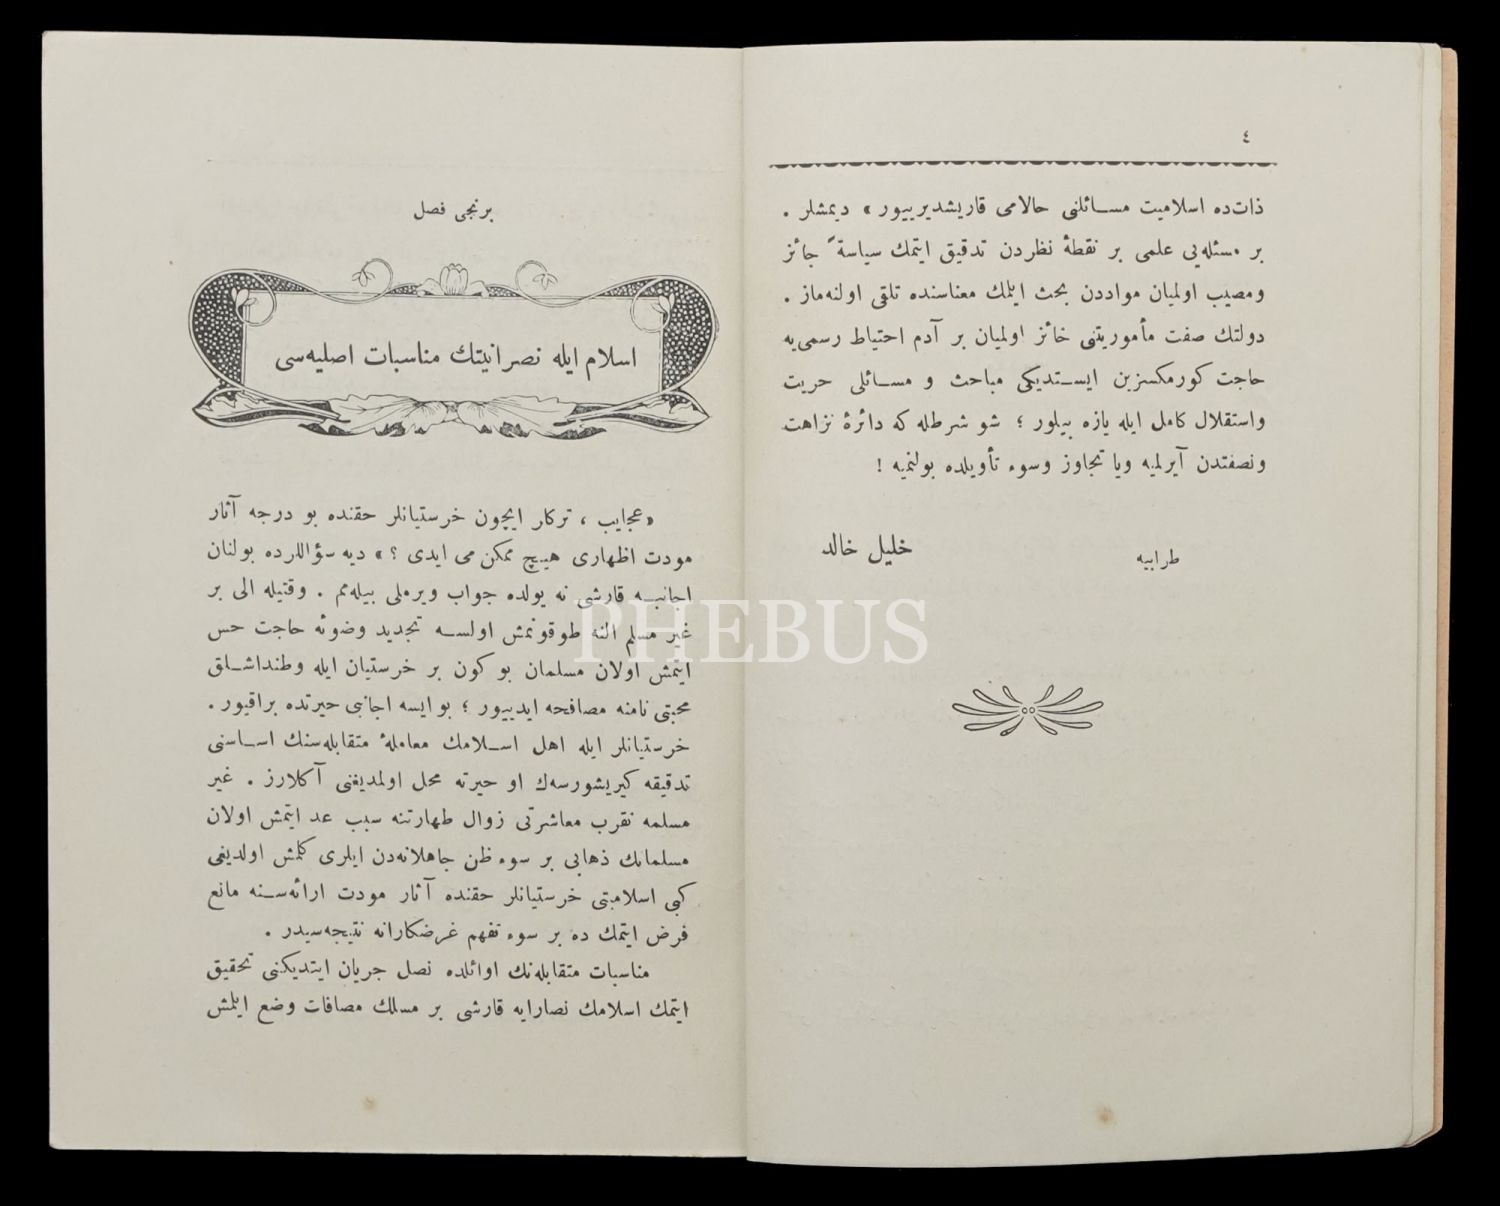 ٤
ذات‌ده اسلامیت مسـائلنی حالامی قاریشدیرییور» دیمشلر .
بر مسئله‌یی علمی بر نقطهٔ نظردن تدقیق ایتمك سیاسةً جائز
ومصیب اولمیان مواددن بحث ایلمك معناسنده تلقی اولنه‌ماز .
دولتك صفت مأموریتنی حائز اولمیان بر آدم احتیاط رسمی‌یه
حاجت كورمكسزین ایسـتدیكی مباحث و مسـائلی حریت
واستقلال كامل ایله یازه بیلور ؛ شو شرطله كه دائرهٔ نزاهت
ونصفتدن آیرلمیه ویا تجاوز وسوء تأویلده بولنمیه !
طرابیه
خلیل خالد
برنجی فصل
اسلام ایله نصرانیتك مناسبات اصلیه‌سی
«عجایب ، تركلر ایچون خرستیانلر حقنده بو درجه آثار
مودت اظهاری هیـچ ممكن می ایدی ؟» دیه سؤاللرده بولنان
اجانبـه قارشی نه یولده جواب ویرملی بیله‌مم . وقتیله الی بر
غیر مسلم النه طوقونمش اولسـه تجدید وضوئه حاجت حس
ایتمش اولان مسلمان بو كون بر خرستیان ایله وطنداشـلق
محبتی نامنه مصافحه ایدییور ؛ بو ایسه اجانبی حیرتده براقیور .
خرستیانلر ایله اهل اسـلامك معاملهٔ متقابله‌سنك اسـاسنی
تدقیقه كیریشورسه‌ك او حیرته محل اولمدیغنی آكلارز . غیر
مسلمه تقرب معاشرتی زوال طهارتنه سبب عد ایتمش اولان
مسلمانك ذهابی بر سوء ظن جاهلانه‌دن ایلری كلمش اولدیغی
كبی اسلامیتی خرستیانلر حقنده آثار مودت ارائه‌سـنه مانع
فرض ایتمك ده بر سوء تفهم غرضكارانه نتیجه‌سیدر .
مناسبات متقابله‌نك اوائلده نصل جریان ایتدیكنی تحقیق
ایتمك اسلامك نصارایه قارشی بر مسلك مصافات وضع ایلمش
PHEBUS